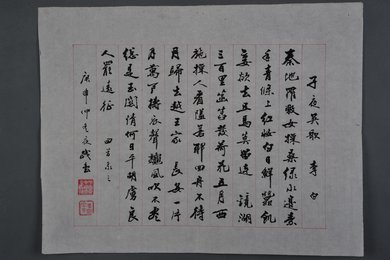 子夜吳歌 李白
秦地羅敷女採桑綠水邊素
手青條上紅妝白日鮮蠶飢
妾欲去五馬莫留連 鏡湖
三百里菡萏發荷花五月西
施採人看隘若耶回舟不待
月歸去越王家 長安一片
月萬戶搗衣聲秋風吹不盡
總是玉關情何日平胡虜良
人罷遠征
庚申仲